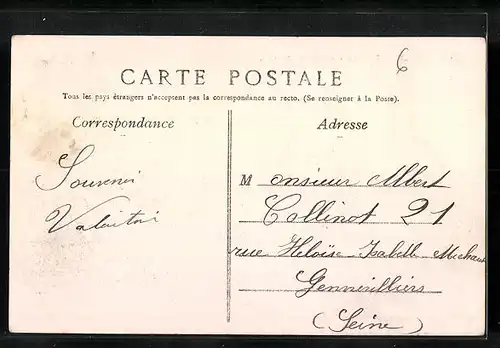 6
CARTE POSTALE
Tous les pays étrangers n'acceptent pas la correspondance au recto. (Se renseigner à la Poste).
Correspondance
Adresse
Souvenir
Monsieur Albert
Collinot 21
rue Héloïse-Isabelle Mechaut
Gennevilliers
(Seine)